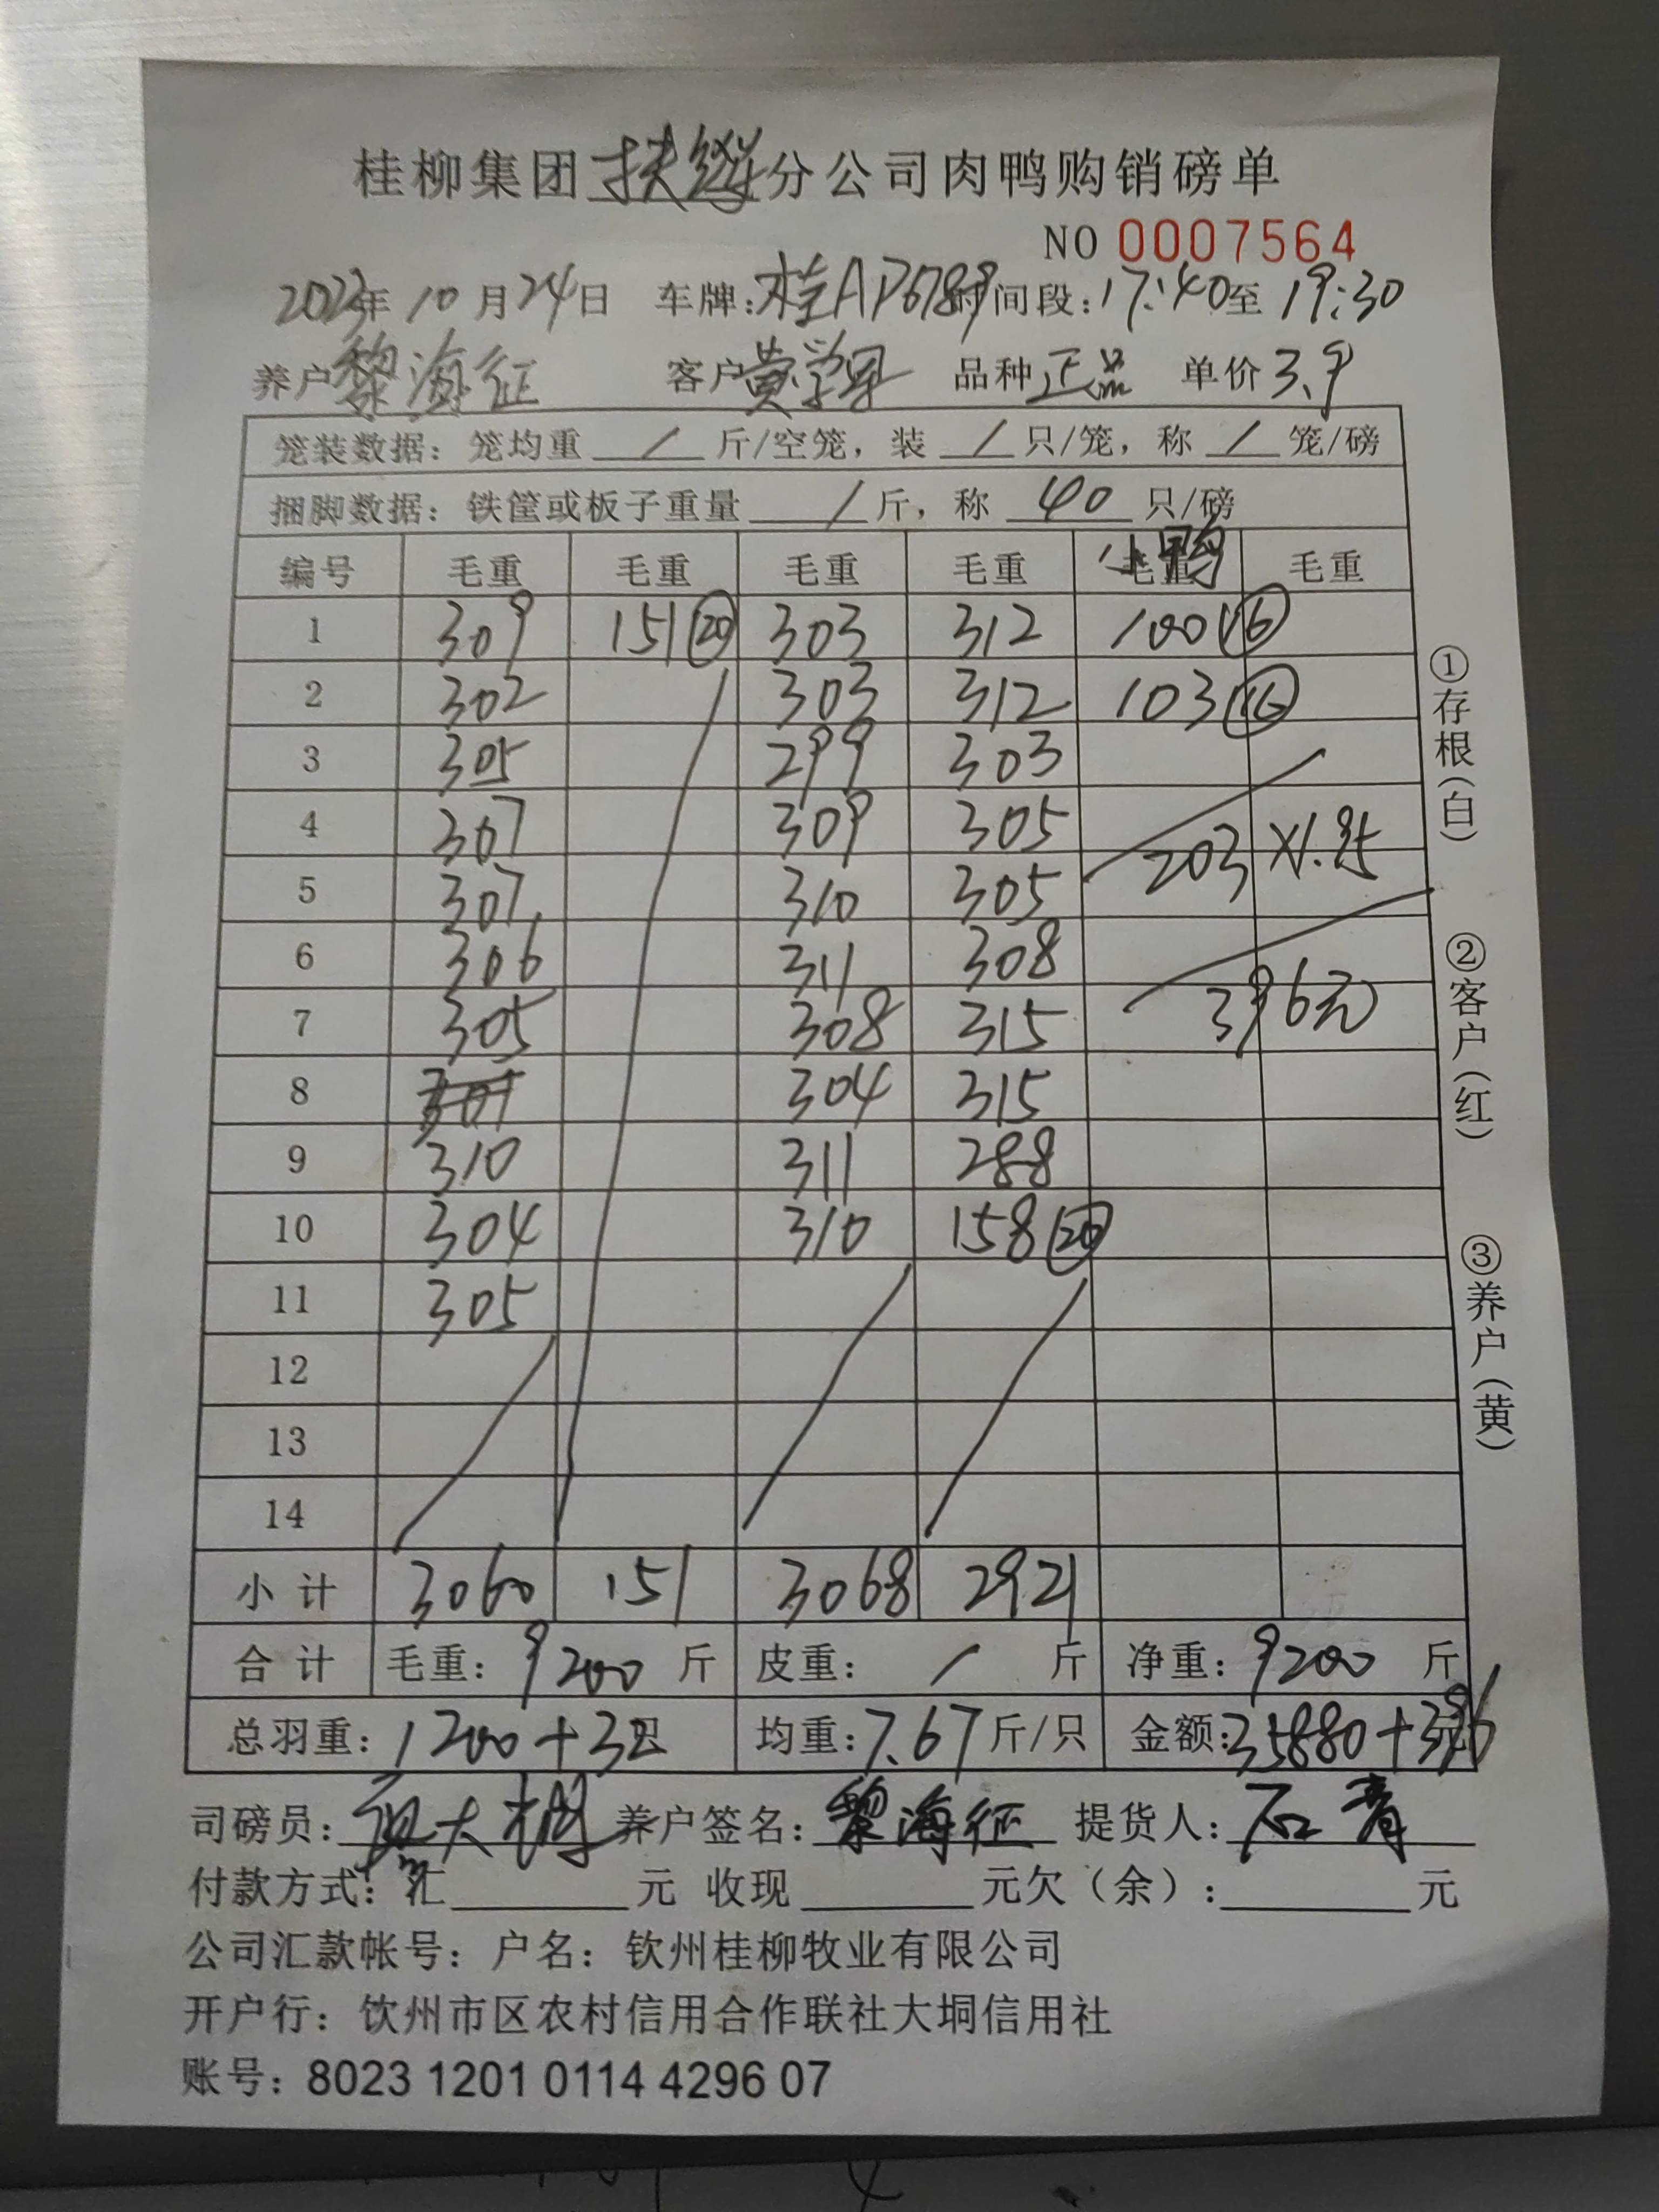 桂柳集团扶绥分公司肉鸭购销磅单
NO 0007564
2023年 10月24日 车牌:桂AP6789时间段:17:40至19:30
养户黎海征 客户黄学军 品种正品 单价3.9
笼装数据:笼均重 / 斤/空笼,装 / 只/笼,称 / 笼/磅
捆脚数据:铁筐或板子重量 / 斤,称 40 只/磅
编号 毛重 毛重 毛重 毛重 毛重 小鸭 毛重
1 309 151 20 303 312 100 16
2 302 303 312 103 16
3 305 299 303
4 307 309 305
5 307 310 305 203 ×1.95
6 306 311 308
7 305 308 315 396元
8 304 315
9 310 311 288
10 304 310 158 20
11 305
12
13
14
小计 3060 151 3068 2921
合计 毛重:9200斤 皮重:/斤 净重:9200斤
总羽重:1200+32只 均重:7.67斤/只 金额:35880+396元
司磅员: 养户签名:黎海征 提货人:石青
付款方式:汇 元 收现 元欠(余): 元
公司汇款帐号:户名:钦州桂柳牧业有限公司
开户行:钦州市区农村信用合作联社大垌信用社
账号:8023 1201 0114 4296 07
①存根(白)
②客户(红)
③养户(黄)